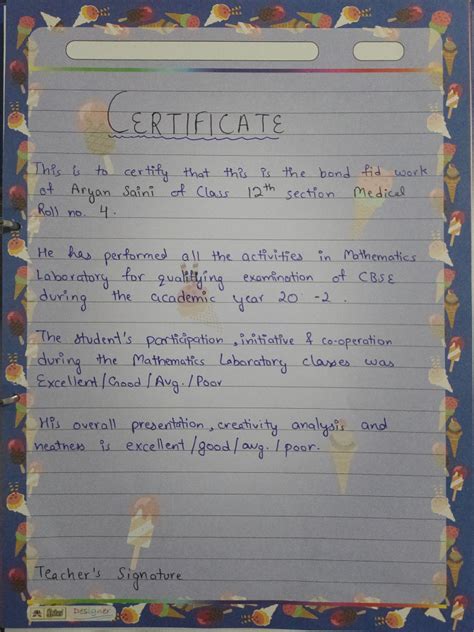 CERTIFICATE
This is to certify that this is the bond fid work
of Aryan Saini of Class 12th section Medical
Roll no. 4.
He has performed all the activities in Mathematics
Laboratory for qualifying examination of CBSE
during the academic year 20 -2 .
The student's participation, initiative & co-operation
during the Mathematics Laboratory classes was
Excellent/Good/Avg./Poor
His overall presentation, creativity analysis and
neatness is excellent/good/avg./poor.
Teacher's Signature
Designer